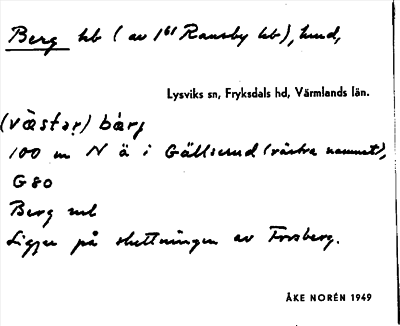 Berg hb (av 1⁶¹ Ransby hb), hmd,
Lysviks sn, Fryksdals hd, Värmlands län.
(västər) bärj
100 m N ä i Gällserud (västra namnet),
G80
Berg
Ligger på sluttningen av Forsberg.
ÅKE NORÉN 1949